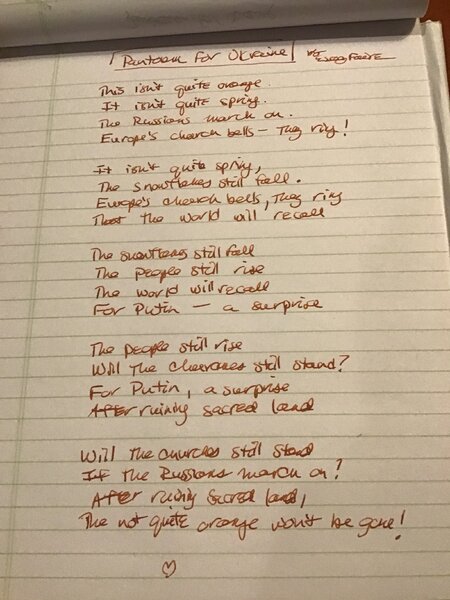 Pantoum for Ukraine
This isn't quite orange.
It isn't quite spring.
The Russians march on.
Europe's church bells — They ring!
It isn't quite spring,
The snowflakes still fall.
Europe's church bells, They ring
That the world will recall
The snowflakes still fall
The people still rise
The world will recall
For Putin — a surprise
The people still rise
Will the churches still stand?
For Putin, a surprise
After ruining sacred land
Will the churches still stand
If the Russians march on?
After ruining sacred land,
The not quite orange won't be gone!